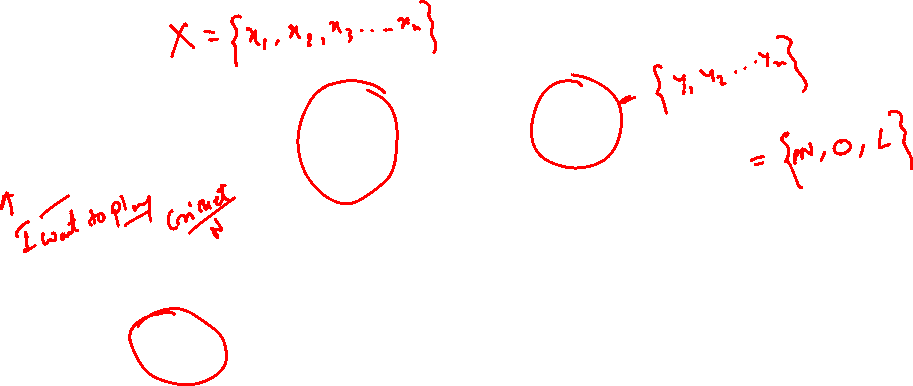 X = {x₁, x₂, x₃ .... xₙ}
{y₁ y₂ ... yₙ}
= {N, O, L}
I want to play cricket
N